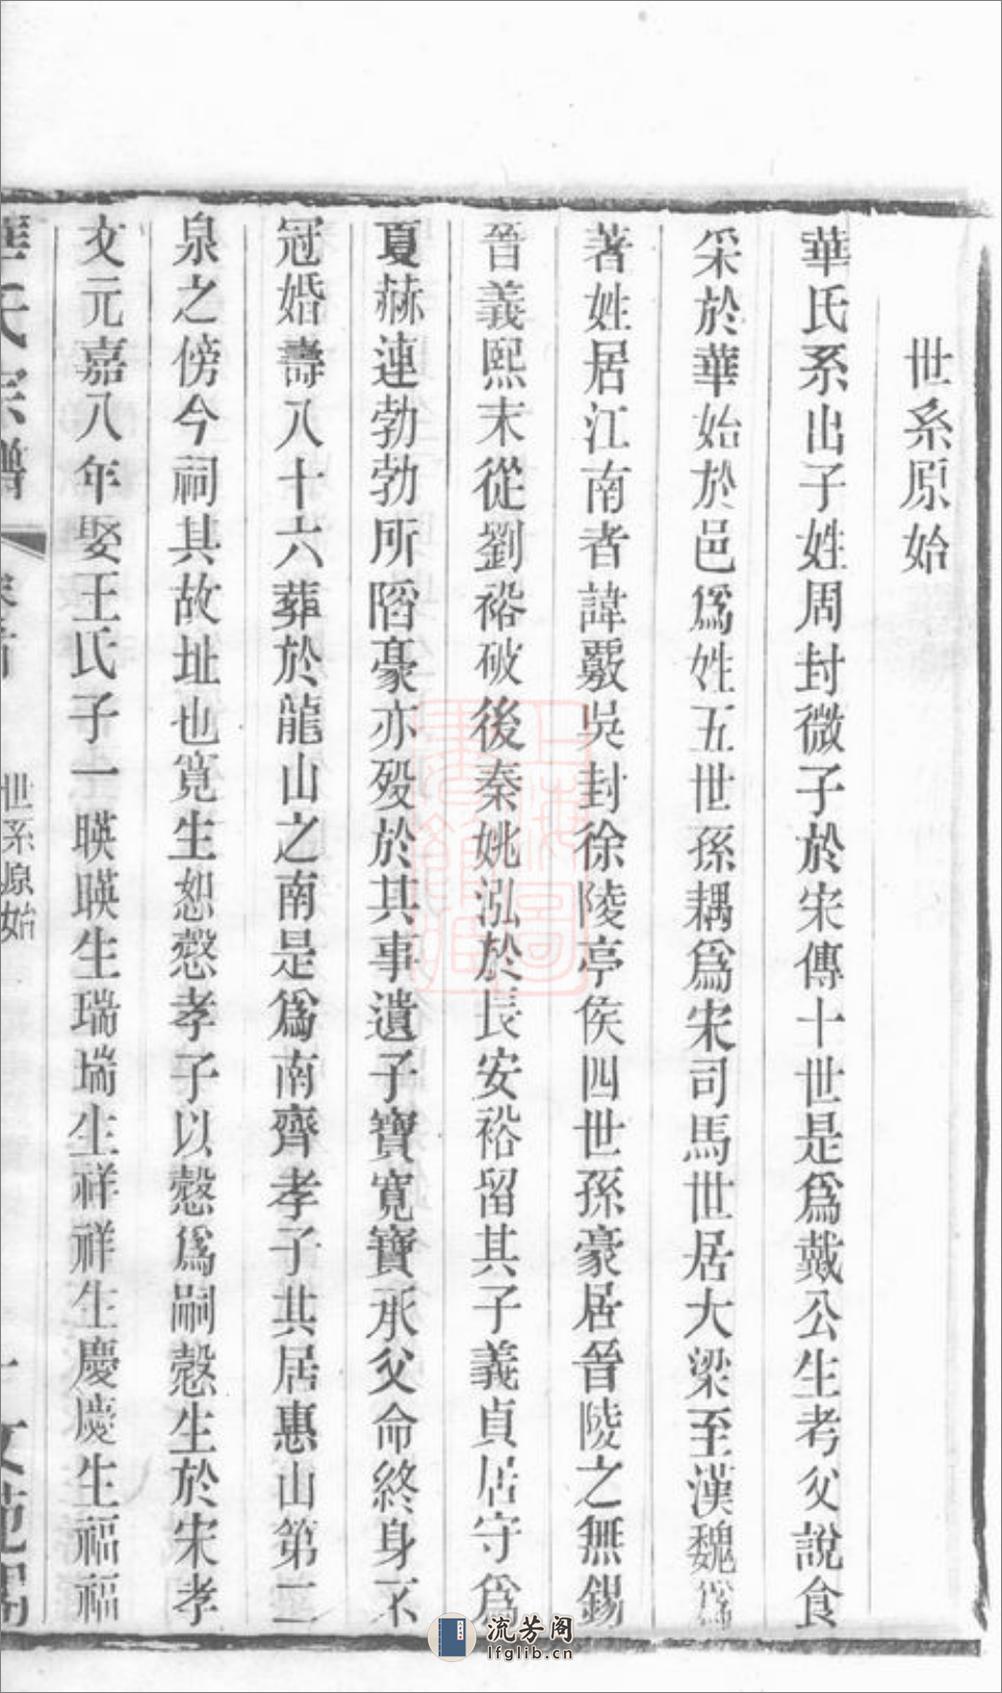 世系原始
華氏系出子姓周封微子於宋傳十世是爲戴公生考父說食
采於華始於邑爲姓五世孫耦爲宋司馬世居大梁至漢魏爲
著姓居江南者諱覈吳封徐陵亭侯四世孫豪居晉陵之無錫
晉義熙末從劉裕破後秦姚泓於長安裕留其子義貞居守爲
夏赫連勃勃所陷豪亦歿於其事遺子寶寬寶承父命終身不
冠婚壽八十六葬於龍山之南是爲南齊孝子共居惠山第二
泉之傍今祠其故址也寬生恕愨孝子以愨爲嗣愨生於宋孝
文元嘉八年娶王氏子一暎暎生瑞瑞生祥祥生慶慶生福福
華氏宗譜
世系原始
上海圖書館藏
流芳阁
lfglib.cn